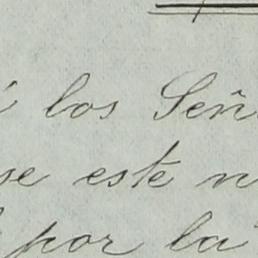 los Señ
se este n
por la